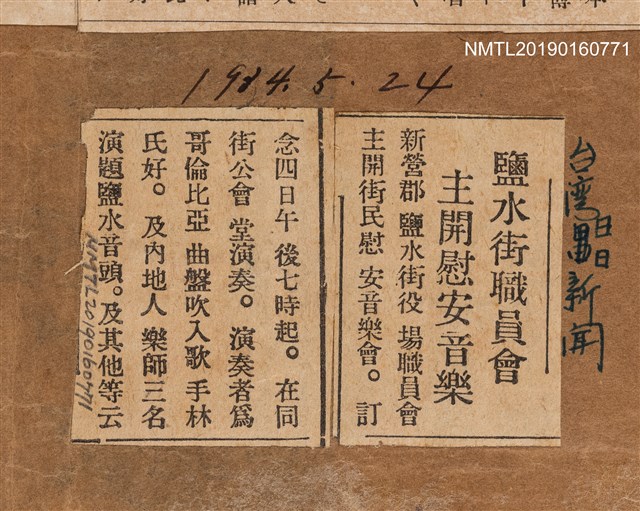 NMTL20190160771
1934.5.24
台湾日日新聞
鹽水街職員會
主開慰安音樂
新營郡鹽水街役場職員會
主開街民慰安音樂會。訂
念四日午後七時起。在同
街公會堂演奏。演奏者爲
哥倫比亞曲盤吹入歌手林
氏好。及內地人樂師三名
演題鹽水音頭。及其他等云
NMTL20190160771